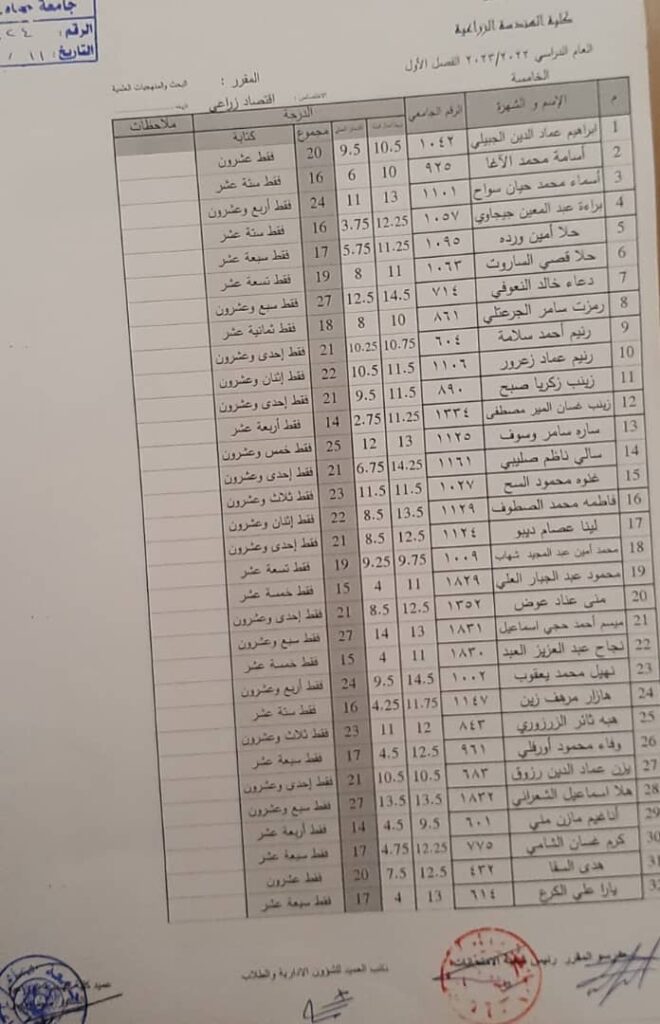 جامعة حماة
الرقم: ٢٤
التاريخ: ١١ /
كلية الهندسة الزراعية
العام الدراسي ٢٠٢٣/٢٠٢٢ الفصل الأول
الخامسة
المقرر : البحث والمنهجيات العلمية
الاختصاص: اقتصاد زراعي
م الإسم و الشهرة الرقم الجامعي الدرجة مجموع كتابة ملاحظات
1 ابراهيم عماد الدين الجبيلي ١٠٤٢ 10.5 9.5 20 فقط عشرون
2 أسامة محمد الآغا ٩٢٥ 10 6 16 فقط ستة عشر
3 أسماء محمد حيان سواح ١١٠١ 13 11 24 فقط أربع وعشرون
4 براءة عبد المعين جيجاوي ١٠٥٧ 12.25 3.75 16 فقط ستة عشر
5 حلا أمين ورده ١٠٩٥ 11.25 5.75 17 فقط سبعة عشر
6 حلا قصي الساروت ١٠٦٣ 11 8 19 فقط تسعة عشر
7 دعاء خالد النعوفي ٧١٤ 14.5 12.5 27 فقط سبع وعشرون
8 رمزت سامر الجرعتلي ٨٦١ 10 8 18 فقط ثمانية عشر
9 رنيم أحمد سلامة ٦٠٤ 10.75 10.25 21 فقط إحدى وعشرون
10 رنيم عماد زعرور ١١٠٦ 11.5 10.5 22 فقط إثنان وعشرون
11 زينب زكريا صبح ٨٩٠ 11.5 9.5 21 فقط إحدى وعشرون
12 زينب غسان المير مصطفى ١٣٣٤ 11.25 2.75 14 فقط أربعة عشر
13 ساره سامر وسوف ١١٢٥ 13 12 25 فقط خمس وعشرون
14 سالي ناظم صليبي ١١٦١ 14.25 6.75 21 فقط إحدى وعشرون
15 غنوه محمود السح ١٠٢٧ 11.5 11.5 23 فقط ثلاث وعشرون
16 فاطمه محمد الصطوف ١١٢٩ 13.5 8.5 22 فقط إثنان وعشرون
17 لينا عصام ديبو ١١٢٤ 12.5 8.5 21 فقط إحدى وعشرون
18 محمد أمين عبد المجيد شهاب ١٠٠٩ 9.75 9.25 19 فقط تسعة عشر
19 محمود عبد الجبار العلي ١٨٢٩ 11 4 15 فقط خمسة عشر
20 منى عناد عوض ١٣٥٢ 12.5 8.5 21 فقط إحدى وعشرون
21 ميسم أحمد حجي اسماعيل ١٨٣١ 13 14 27 فقط سبع وعشرون
22 نجاح عبد العزيز العبد ١٨٣٠ 11 4 15 فقط خمسة عشر
23 نهيل محمد يعقوب ١٠٠٢ 14.5 9.5 24 فقط أربع وعشرون
24 هازار مرهف زين ١١٤٧ 11.75 4.25 16 فقط ستة عشر
25 هبه ثائر الزرزوري ٨٤٣ 12 11 23 فقط ثلاث وعشرون
26 وفاء محمود أورفلي ٩٦١ 12.5 4.5 17 فقط سبعة عشر
27 يزن عماد الدين رزوق ٦٨٣ 10.5 10.5 21 فقط إحدى وعشرون
28 هلا اسماعيل الشعراني ١٨٣٢ 13.5 13.5 27 فقط سبع وعشرون
29 أناغيم مازن مني ٦٠١ 9.5 4.5 14 فقط أربعة عشر
30 كرم غسان الشامي ٧٧٥ 12.25 4.75 17 فقط سبعة عشر
31 هدى السقا ٤٣٢ 12.5 7.5 20 فقط عشرون
32 يارا علي الكرع ٦١٤ 13 4 17 فقط سبعة عشر
المقرر رئيس الامتحانات نائب العميد للشؤون الادارية والطلاب عميد